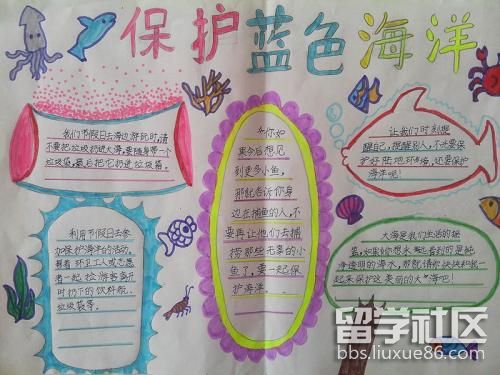 保护蓝色海洋
我们节假日去海边游玩时,请
不要把垃圾扔进大海,要随身带一个
垃圾袋,最后把它扔进垃圾箱。
利用节假日去参
加保护海洋的活动。
跟着环卫工人或志愿
者一起捡游客随
叶扔下的饮料瓶、
垃圾袋等。
你如
果今后想见
到更多小鱼,
那就告诉你身
边在捕鱼的人,不
要再让他们去捕
捞那些无辜的小
鱼了,要一起保
护海洋
让我们时刻提
醒自己,提醒别人,不光要保
护好陆地环境,还要保
护海洋呢!
大海是我们生活的摇
篮,如果你想永远看到的是纯
净清澈的海水,那就请你快快和我一
起来保护这美丽的大海吧!
留学社区
bbs.liuxue86.com